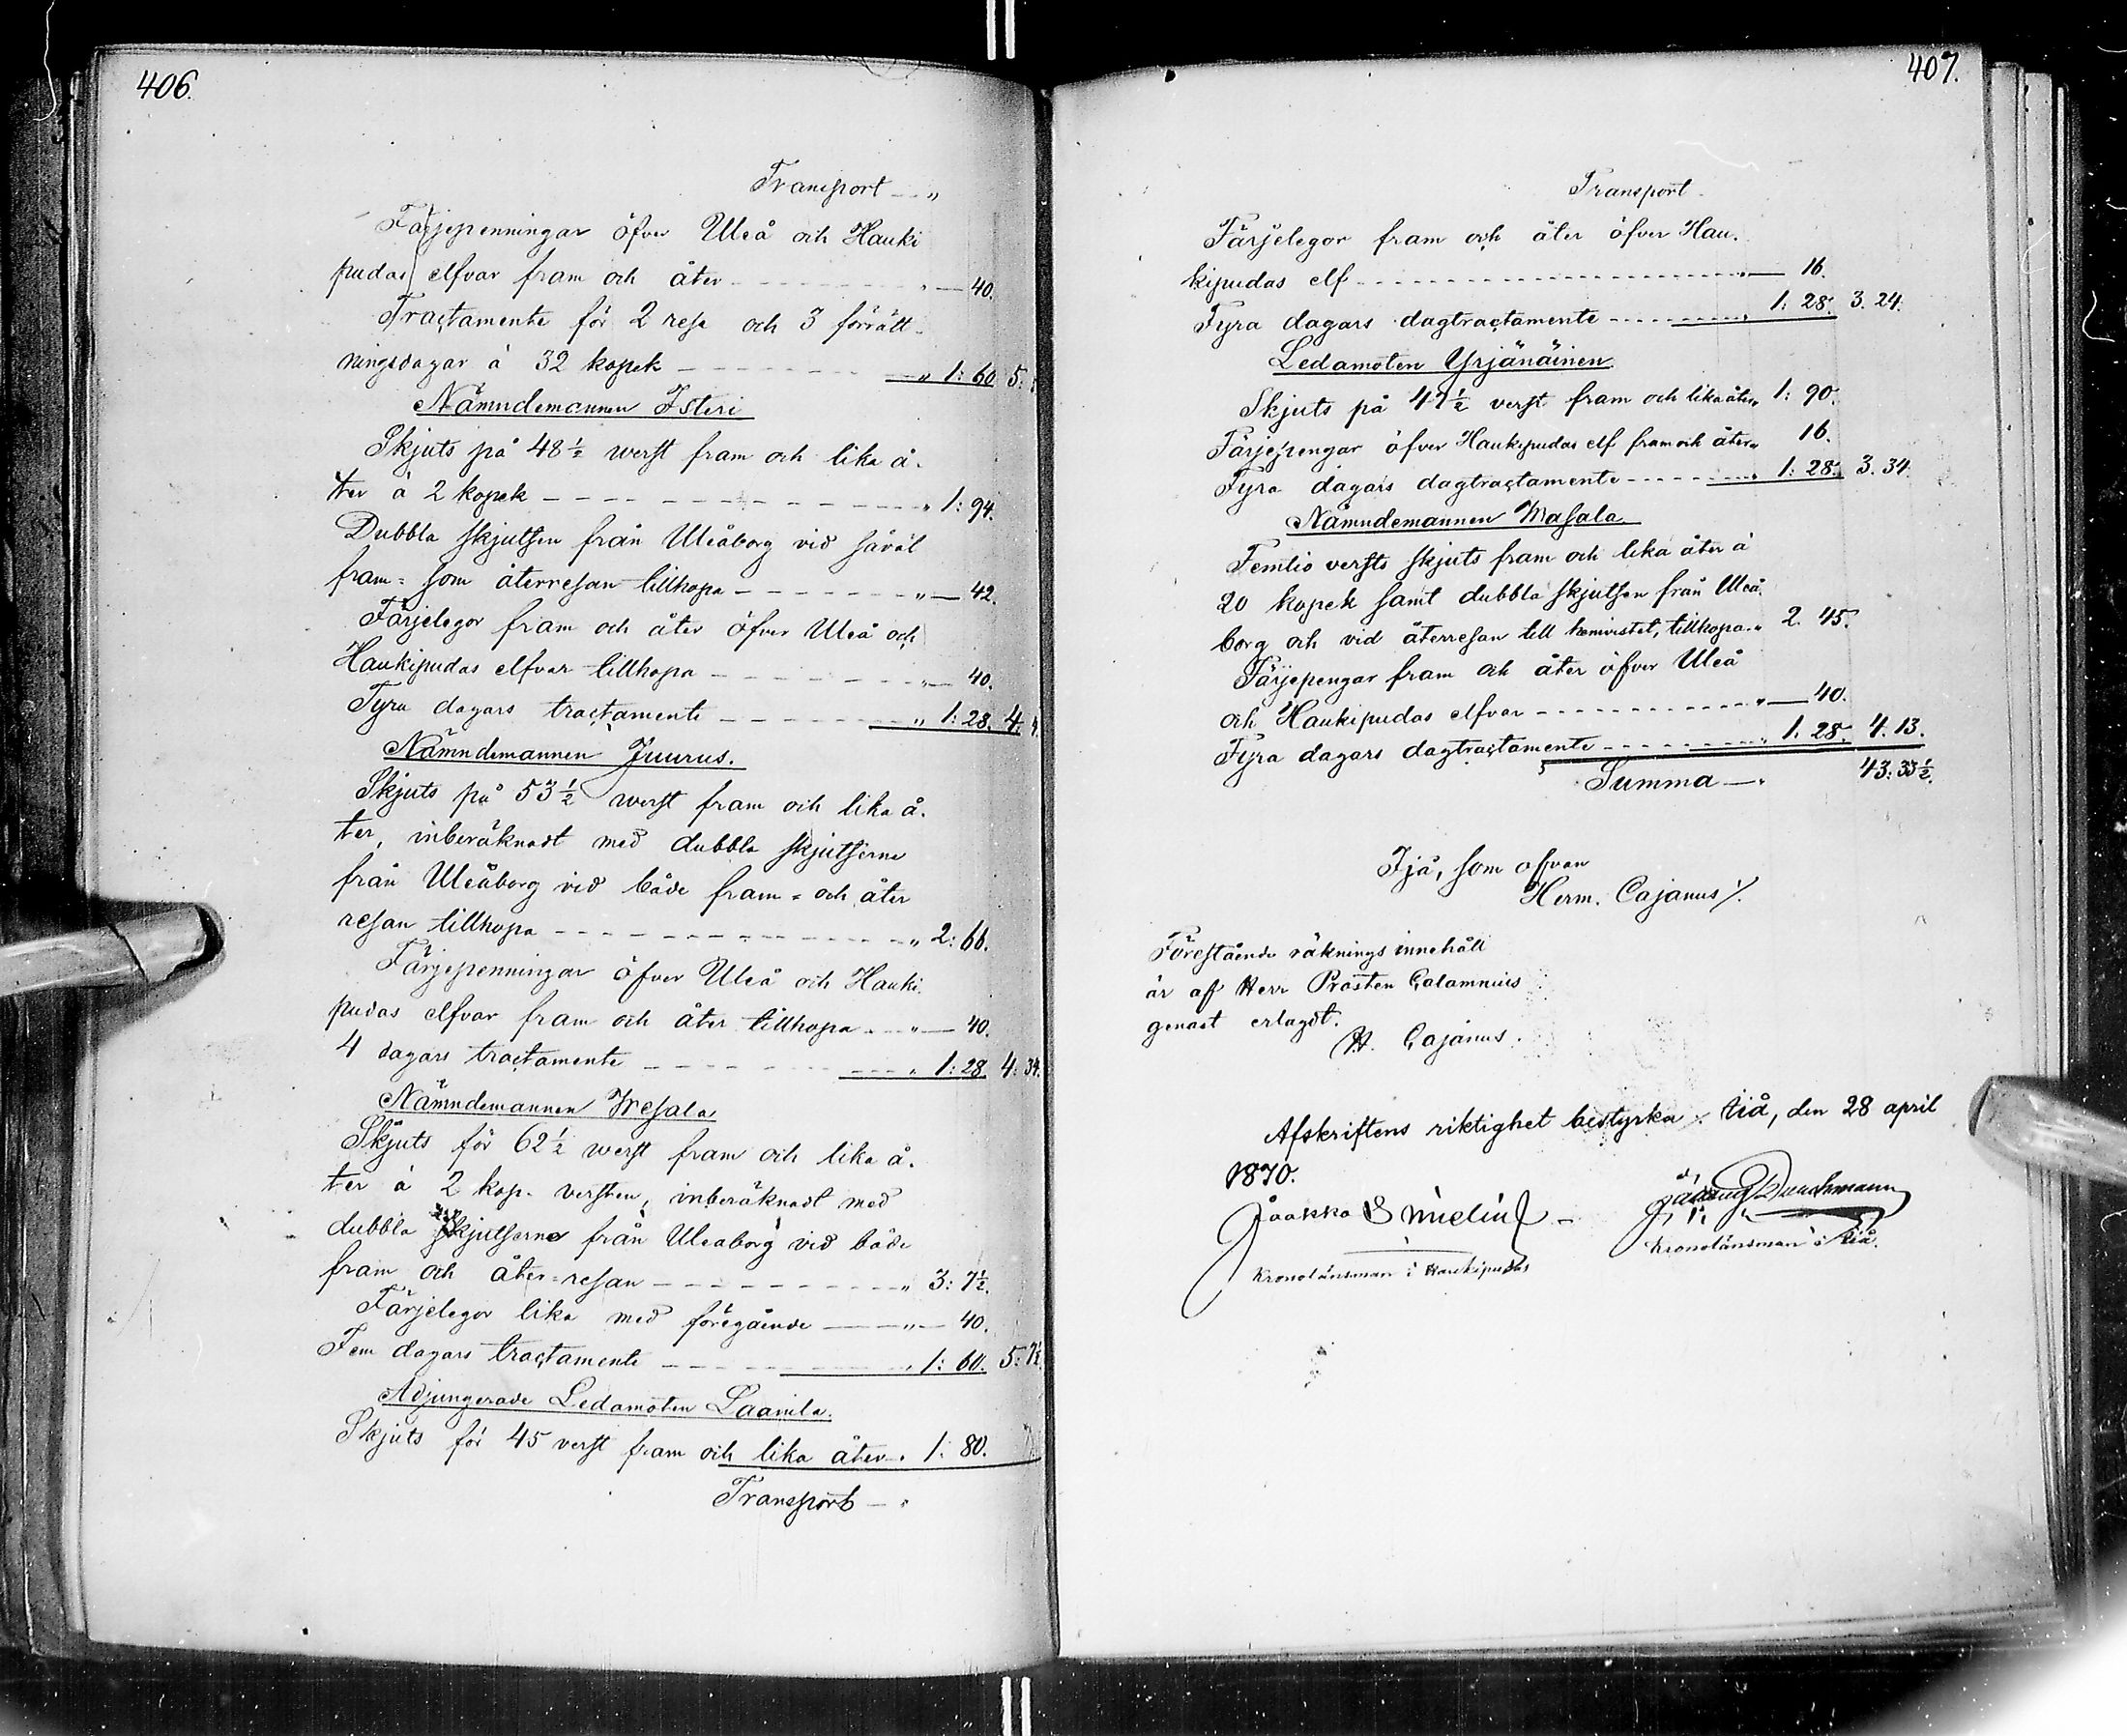 406.
Transport — "
Färjepenningar öfver Uleå och Hauki
pudas elfvar fram och åter - - - " — 40.
Tractamente för 2 rese och 3 förrätt-
ningsdagar à 32 kopek - - - " 1: 60. 5:
Nämndemannen Isteri
Skjuts på 48 ½ werst fram och lika å-
ter à 2 kopek - - - " 1: 94.
Dubbla skjutsen från Uleåborg vid såväl
fram= som återresan tillhopa - - - " — 42.
Färjelegor fram och åter öfver Uleå och
Haukipudas elfvar tillhopa - - - " — 40.
Fyra dagars tractamente - - - " 1: 28. 4:
Nämndemannen Juurus.
Skjuts på 53 ½ werst fram och lika å-
ter, inberäknadt med dubbla skjutserne
från Uleåborg vid både fram= och åter
resan tillhopa - - - " 2: 66.
Färjepenningar öfver Uleå och Hauki
pudas elfvar fram och åter tillhopa - " — 40.
4 dagars tractamente - - - " 1: 28. 4: 34.
Nämndemannen Wesala
Skjuts för 62 ½ werst fram och lika å-
ter à 2 kop. versten, inberäknadt med
dubbla skjutserne från Uleaborg vid både
fram och åter=resan - - - " 3: 7½.
Färjelegor lika med föregående — " — 40.
Fem dagars tractamente - - - " 1: 60. 5: 7½
Adjungerade Ledamoten Laanila.
Skjuts för 45 verst fram och lika åter " 1: 80.
Transport — "
407.
Transport
Färjelegor fram och åter öfver Hau-
kipudas elf - - - " — 16.
Fyra dagars dagtractamente - - - " 1: 28. 3. 24.
Ledamoten Yrjänäinen
Skjuts på 47½ verst fram och lika åter " 1: 90.
Färjepengar öfver Haukipudas elf fram och åter " 16.
Fyra dagars dagtractamente - - - " 1: 28. 3. 34.
Nämndemannen Masala
Femtio versts skjuts fram och lika åter à
20 kopek samt dubbla skjutsen från Uleå
borg och vid återresan till hemvistet, tillhopa " 2. 45.
Färjepengar fram och åter öfver Uleå
och Haukipudas elfvar - - - " — 40.
Fyra dagars dagtractamente - - - " 1. 28. 4. 13.
Summa — " 43: 33½.
Ijå, som ofvan
Herm. Cajanus /.
Förestående räknings innehåll
är af Herr Prosten Calamnius
genast erlagdt.
H. Cajanus.
Afskriftens riktighet bestyrka: Iiå, den 28 april
1870.
Jaakko Smelin
Kronolänsman i Haukipudas
Kronolänsman i Iiå.